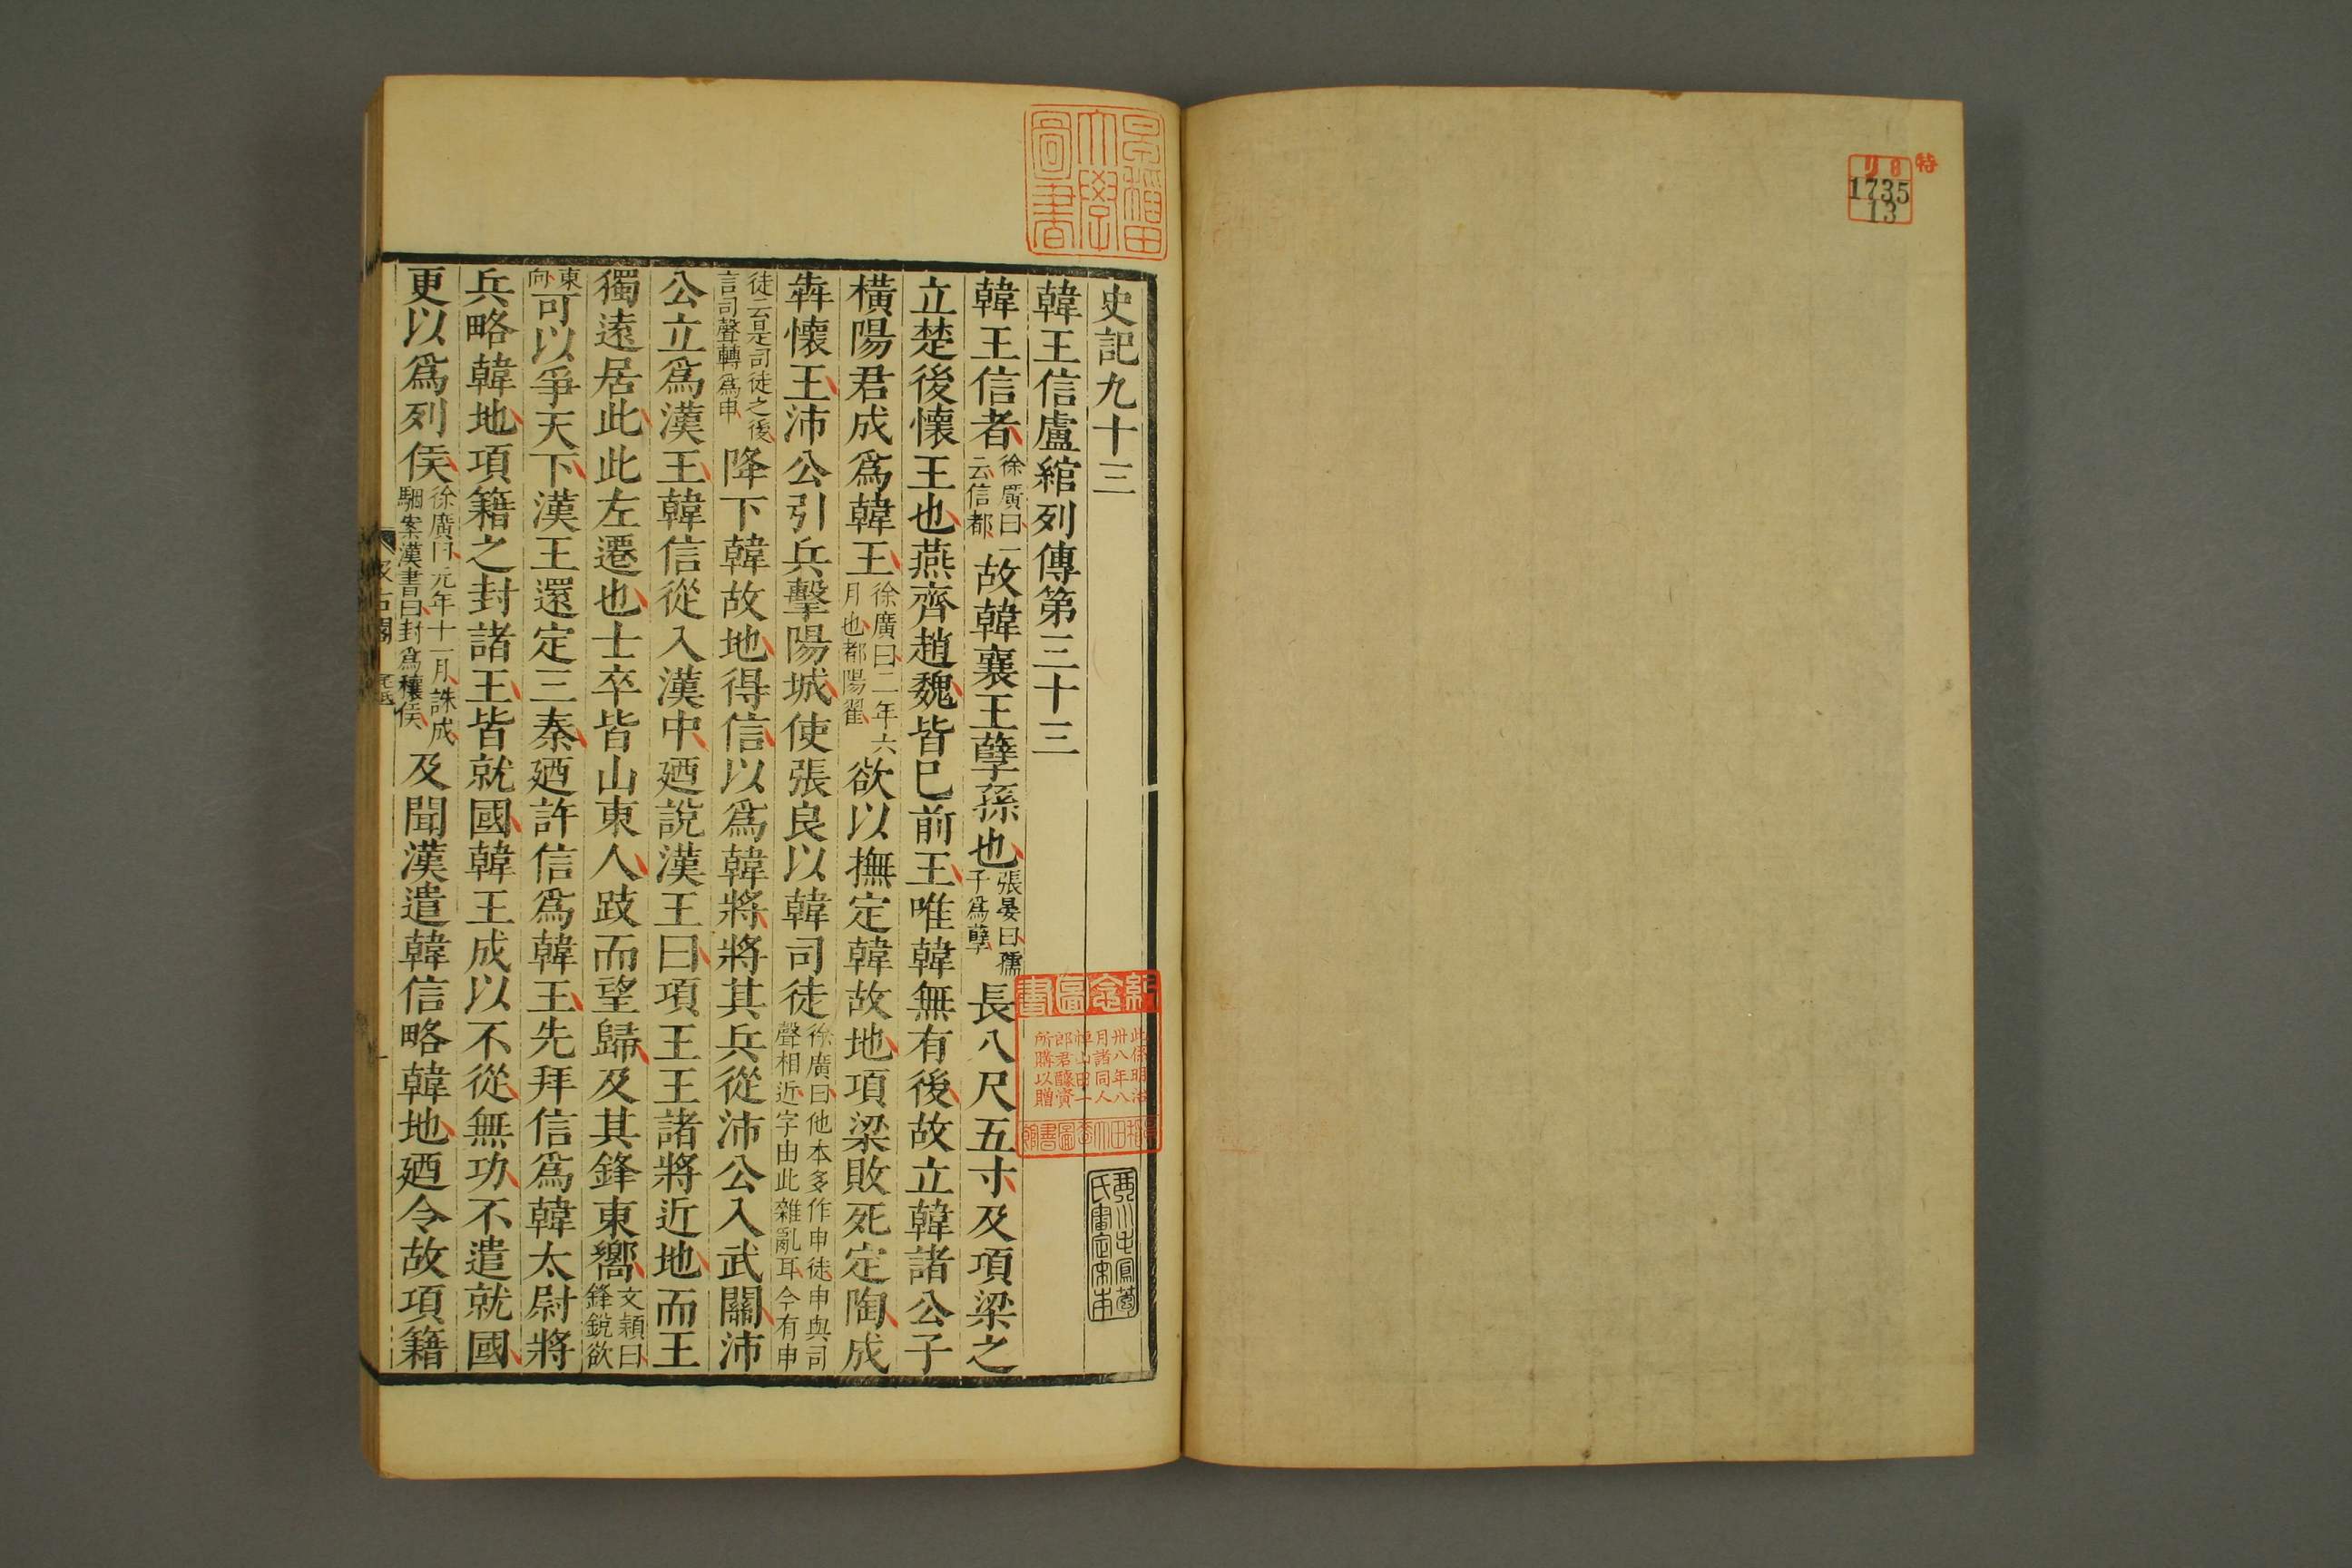 特
リ8
1735
13
早稲田大學圖書
史記九十三
韓王信盧綰列傳第三十三
韓王信者徐廣曰一云信都故韓襄王孽孫也張晏曰孺子爲孽長八尺五寸及項梁之
立楚後懷王也燕齊趙魏皆已前王唯韓無有後故立韓諸公子
橫陽君成爲韓王徐廣曰二年六月也都陽翟欲以撫定韓故地項梁敗死定陶成
犇懷王沛公引兵擊陽城使張良以韓司徒徐廣曰他本多作申徒申與司聲相近字由此雜亂耳今有申
徒云是司徒之後言司聲轉爲申降下韓故地得信以爲韓將將其兵從沛公入武關沛
公立爲漢王韓信從入漢中廼說漢王曰項王王諸將近地而王
獨遠居此此左遷也士卒皆山東人跂而望歸及其鋒東嚮文穎曰鋒銳欲
東向可以爭天下漢王還定三秦廼許信爲韓王先拜信爲韓太尉將
兵略韓地項籍之封諸王皆就國韓王成以不從無功不遣就國
更以爲列侯徐廣曰元年十一月誅成駰案漢書曰封爲穰侯及聞漢遣韓信略韓地廼令故項籍
紀念圖書
此係明治
卅八年八
月諸同人
悼山田一
郎君醵資
所購以贈
早稲田大學圖書館